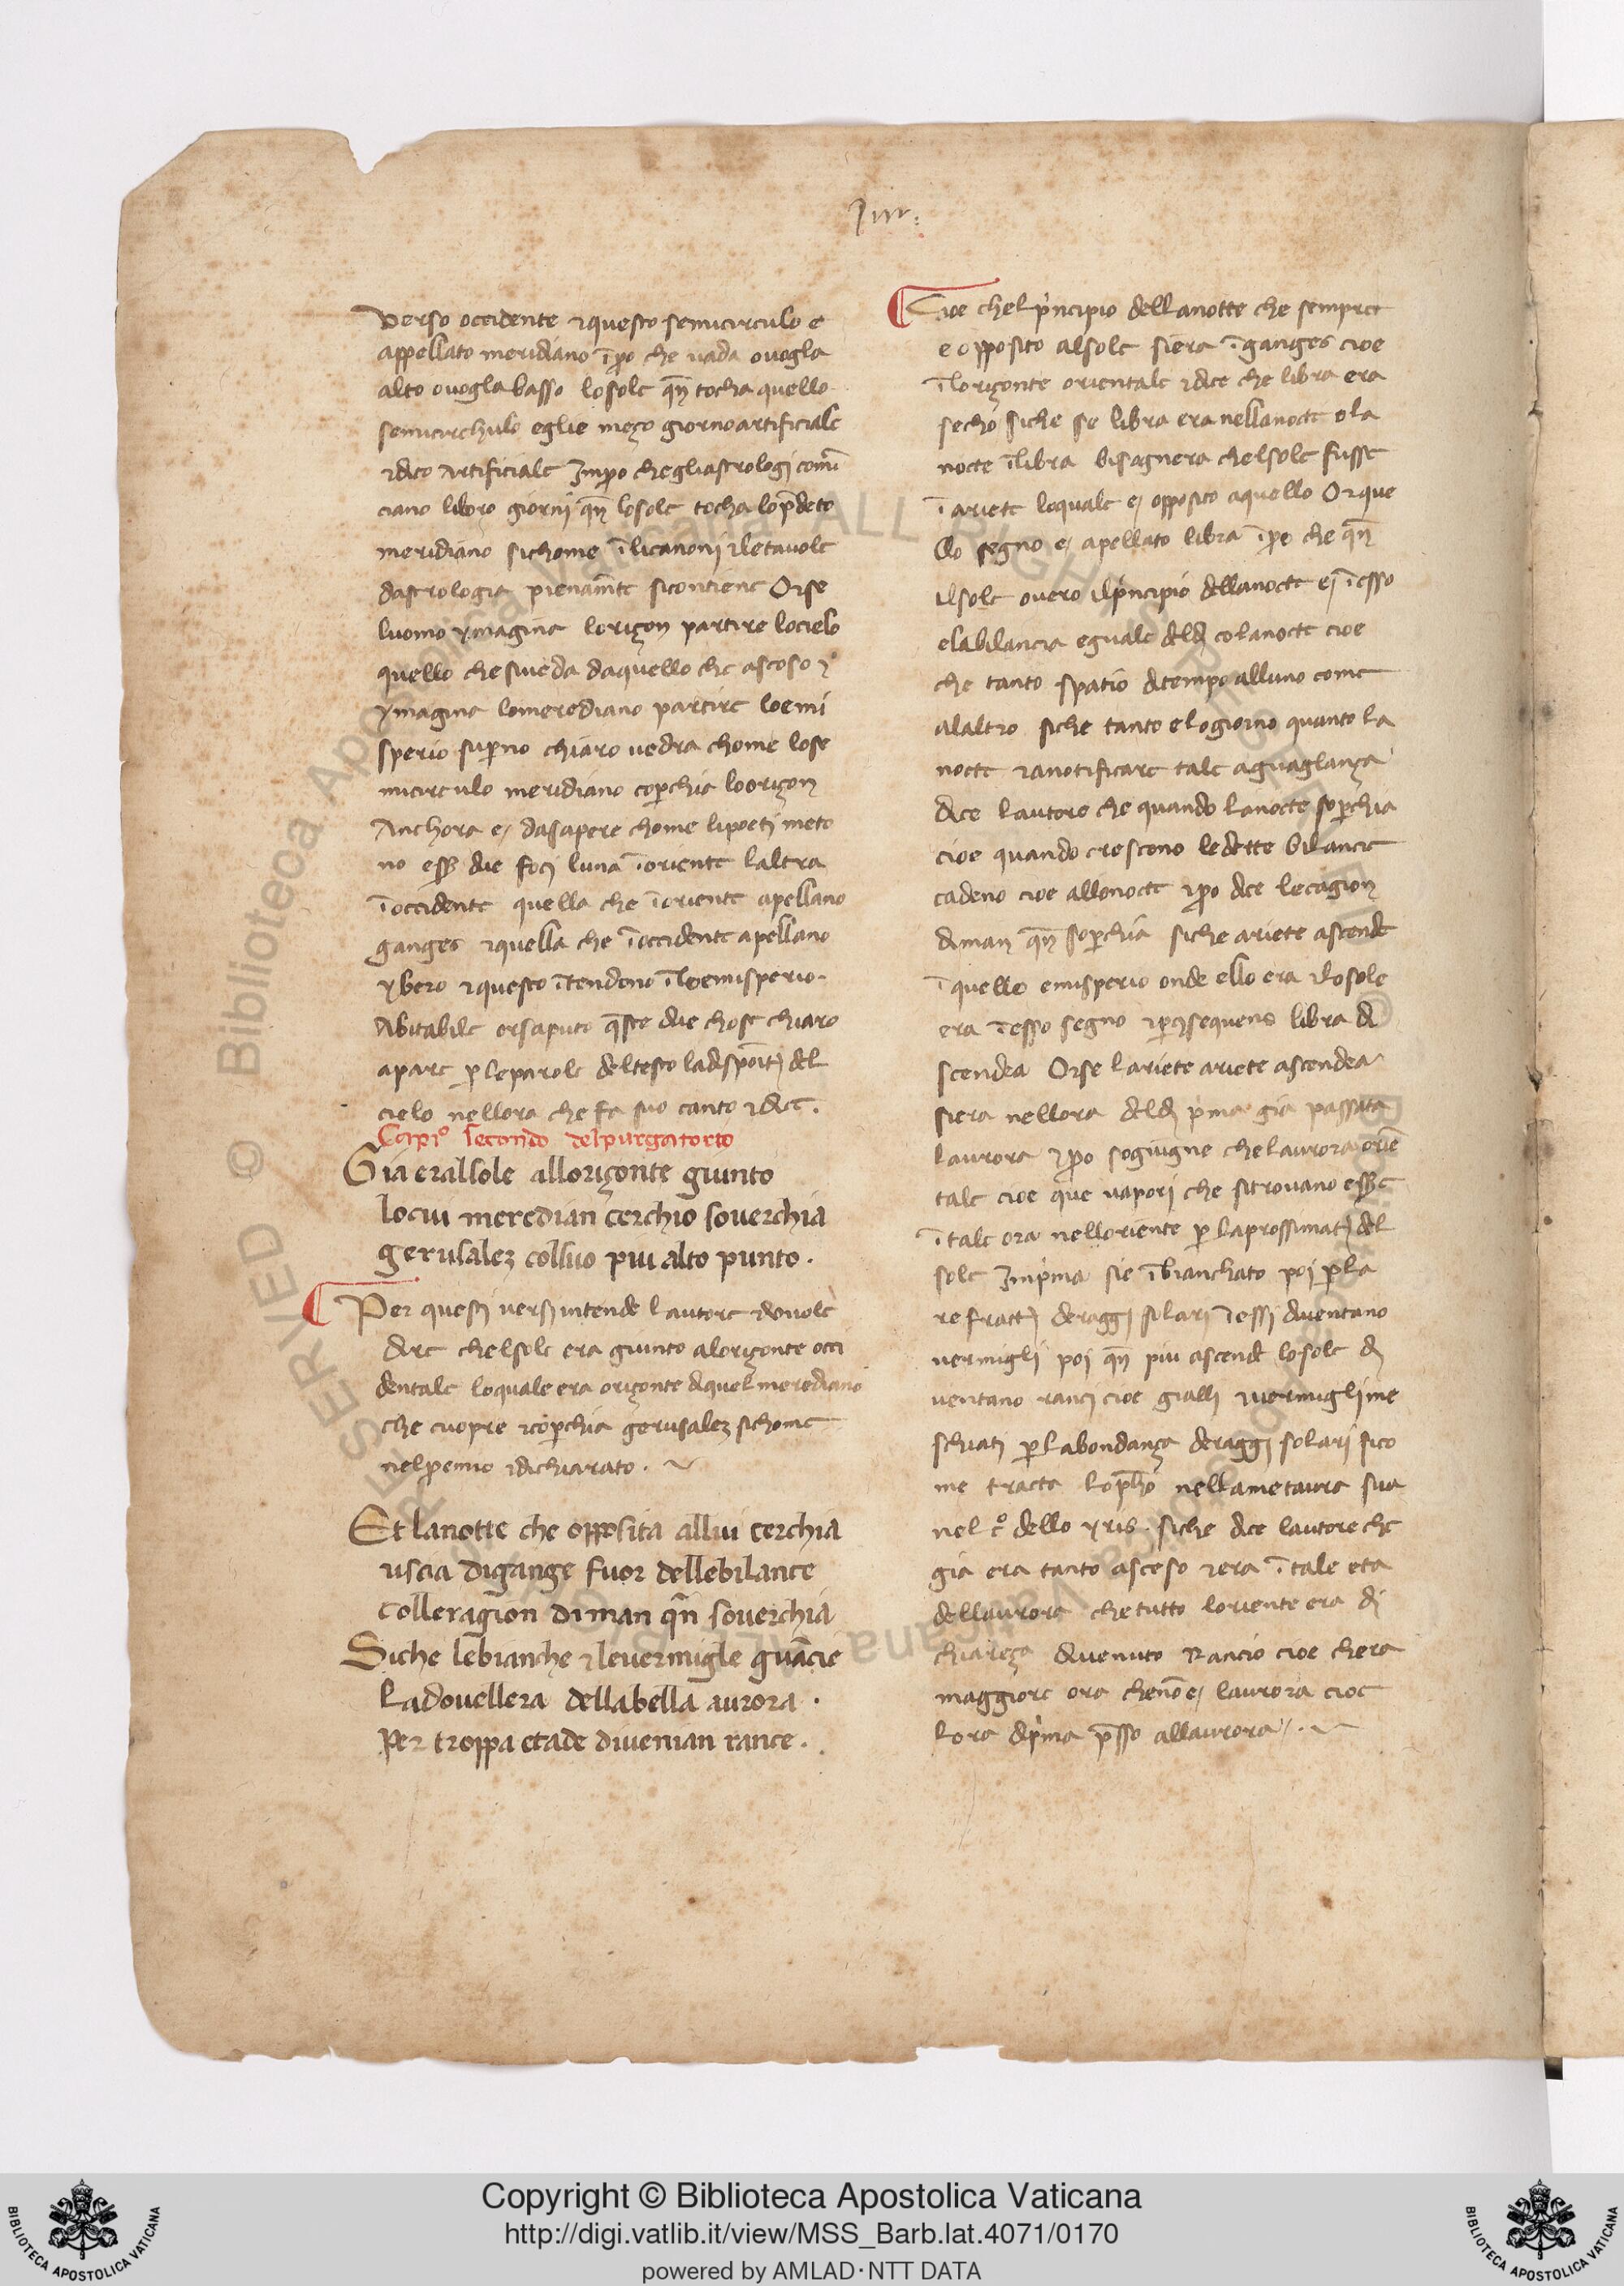 verso occidente ⁊questo semicirculo e
appellato meridiano ĩꝑo che uada ouogla
alto ouogla basso losole qñ tocha quello
semicirchulo eglie mezo giorno artificiale
⁊dico artificiale Impo che gliastrologi comĩ
ciano liloro giorni qñ losole tocha lop̃deto
meridiano sichome ĩ licanoni ⁊letauole
dastrologia pienam̃te sicontiene Orse
luomo ymagina lorizon partire locielo
quello che siueda daquello che ascoso ⁊
ymagina lomerediano partire loemi
sperio suꝑno chiaro uedra chome lose
micirculo meridiano coꝑchia loorizon
Anchora e dasapere chome lipoeti meto
no ess̃ due foci luna ĩoriente laltra
ĩoccidente quella che ĩoriente apellano
ganges ⁊quella che ĩoccidente apellano
ybero ⁊questo ĩtendono ĩloemisperio
Abitabile orsaputo q̃ste due chose chiaro
apare ꝑ leparole deltesto ladispõit̃ del
cielo nellora che fa suo canto ⁊dice.
Capi° secondo delpurgatorio
Gia eralsole allorizonte giunto
locui meredian cerchio souerchia
gerusalez colsuo piu alto punto.
Per questi uersi intende lautore ⁊douole
dire chelsole era giunto alorizonte occi
dentale loquale era orizonte diquel merediano
che cuopre ⁊coꝑchia gerusalez sichome
nelꝓemio ⁊dichiarato.
Et lanotte che opposita allui cerchia
uscia digange fuor dellebilance
colleragion diman qñ souerchia
Siche lebianche ⁊leuermigle guãcie
Ladouellera dellabella aurora.
Per troppa etade diuenian rance.
Cioe chel p̃ncipio dellanotte che sempre
e opposito alsole siera ĩganges cioe
ĩlorizonte orientale ⁊dice che libra era
secho siche se libra era nellanocte ola
nocte ĩlibra bisagnera chelsole fusse
ĩariete loquale e opposito aquello Orque
llo segno e apellato libra ĩꝑo che qñ
ilsole ouero ilp̃ncipio dellanocte e ĩesso
elabilancia eguale deldi colanocte cioe
che tanto spatio ditempo alluno come
alaltro siche tanto elogiorno quanto la
nocte ⁊anotificare tale aguaglanza
dice lautore che quando lanocte soꝑchia
cioe quando crescono ledette bilance
cadeno cioe allonocte ⁊ꝑo dice lecagion
diman qñ soꝑchia siche ariete ascende
ĩquello emisperio onde ello era ⁊losole
era ĩesso segno ⁊ꝑ9sequens libra di
scendea Orse lariete ariete ascendea
siera nellora deldi p̃ma gia passata
laurora ⁊ꝑo sogiugne chelaurora oriẽ
tale cioe que uapori che sitrouano ess̃e
ĩtale ora nelloriente ꝑ laprossimat̃ del
sole Imp̃ma sie ĩbianchato poi ꝑ la
refratt̃ deraggi solari ĩessi diuentano
uermigli poi qñ piu ascende losole di
uentano ranci cioe gialli ⁊uermigli me
schiati ꝑ labondanza deraggi solari sico
me tracta lop̃ho nellametaura sua
nel c° dello yris. siche dice lautore che
gia era tanto asceso ⁊era ĩtale eta
dellaurora che tutto loriente era di
chiareza diuenuto rancio cioe chera
maggiore ora chenõe laurora cioe
lora dip̃ma p̃sso allaurora.
Copyright © Biblioteca Apostolica Vaticana
http://digi.vatlib.it/view/MSS_Barb.lat.4071/0170
powered by AMLAD·NTT DATA
BIBLIOTECA APOSTOLICA VATICANA
BIBLIOTECA APOSTOLICA VATICANA